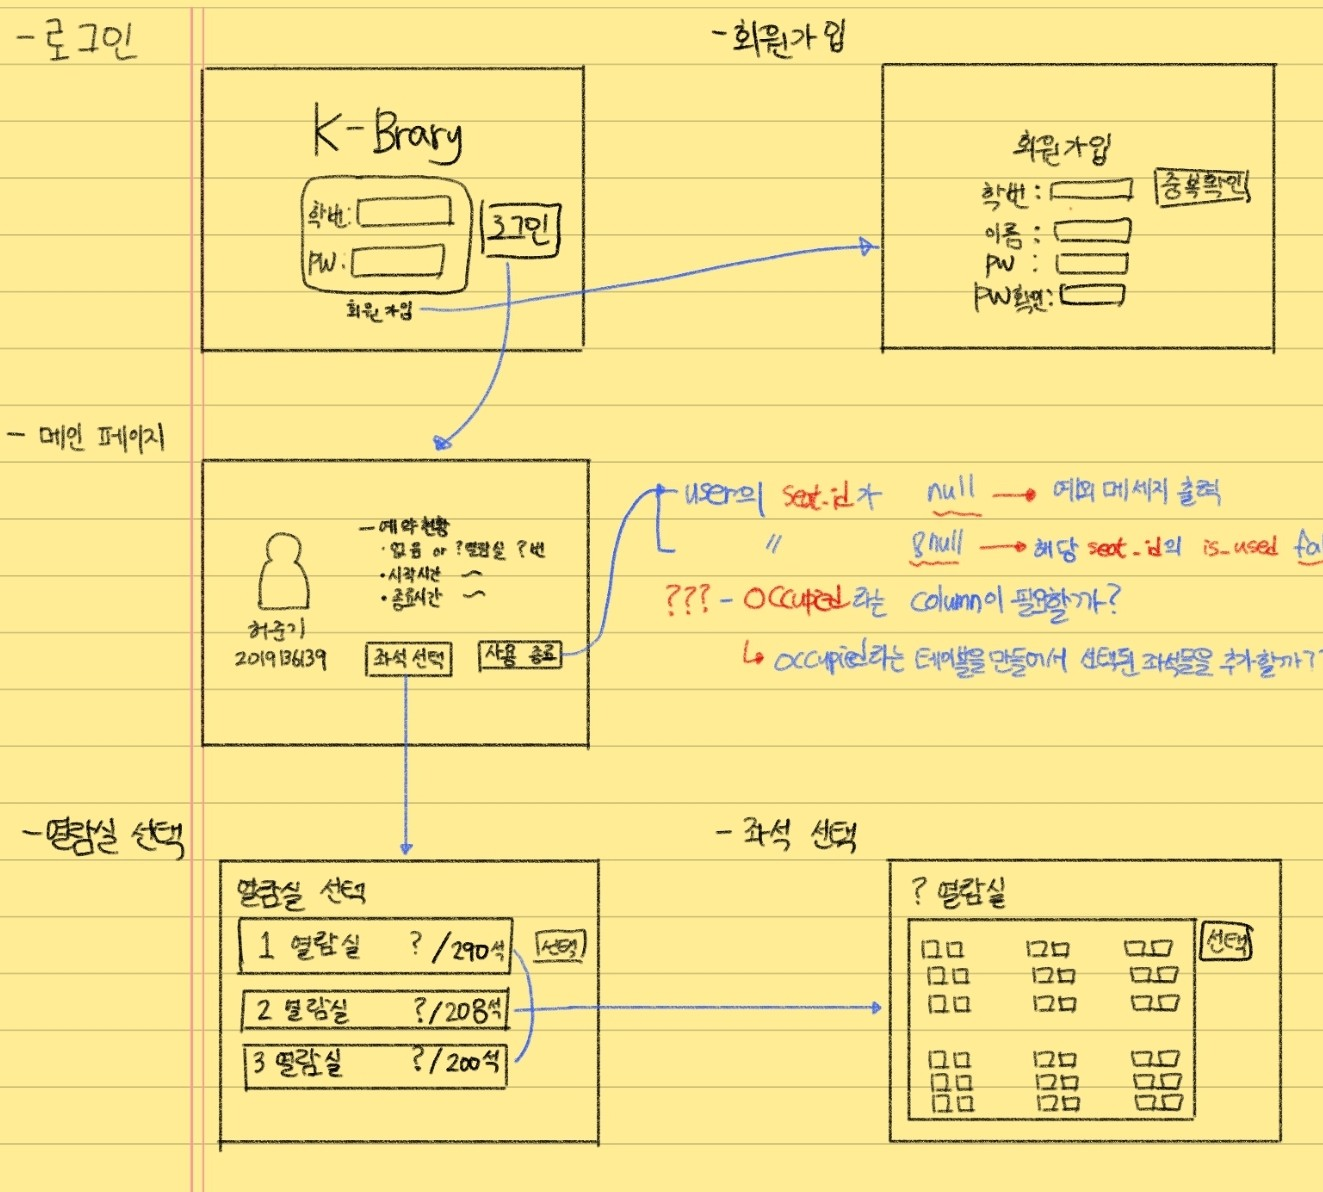 - 로그인
- 회원가입
K-Brary
학번:
PW:
로그인
회원가입
회원가입
학번:
중복확인
이름:
PW:
PW확인:
- 메인 페이지
- 예약현황
· 없음 or ?열람실 ?번
· 시작시간 ~
· 종료시간 ~
허준기
2019136139
좌석 선택
사용 종료
user의 seat_id가 null → 예외 메세지 출력
〃 → 해당 seat_id의 is_used
??? - occupied라는 column이 필요할까?
↳ occupied라는 테이블을 만들어서 선택된 좌석들을 추가할까?
- 열람실 선택
- 좌석 선택
열람실 선택
1 열람실 ?/290석
선택
2 열람실 ?/208석
3 열람실 ?/200석
? 열람실
선택